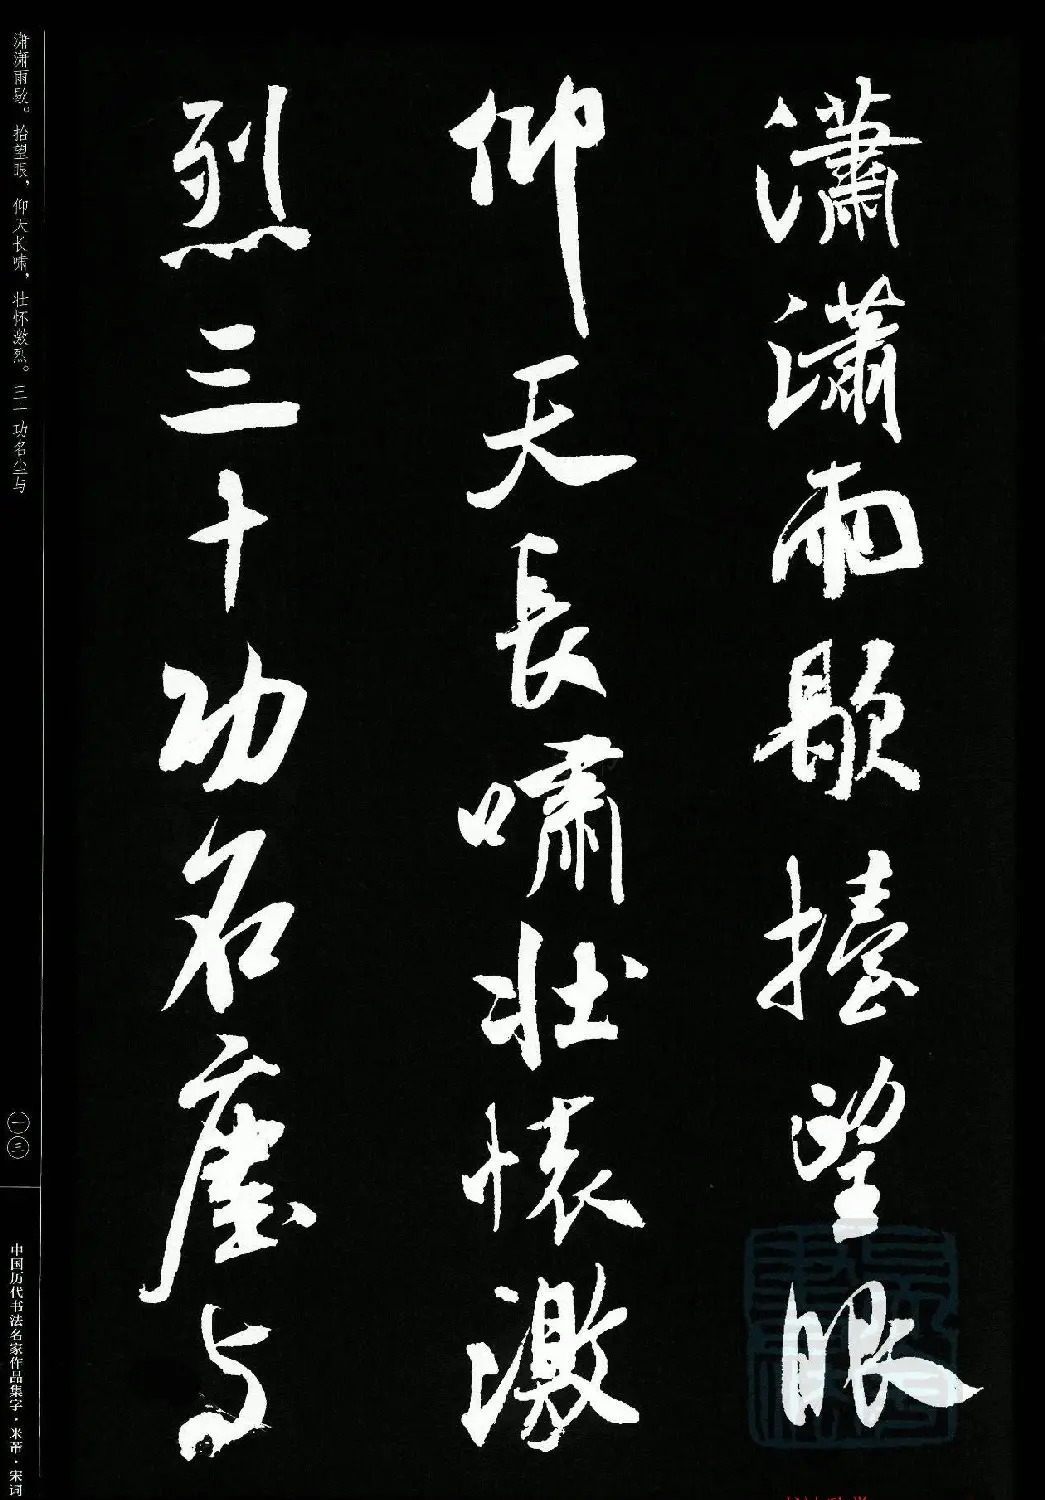 瀟瀟雨歇擡望眼
仰天長嘯壯懷激
烈三十功名塵与
潇潇雨歇。抬望眼，仰天长啸，壮怀激烈。三十功名尘与
一三
中国历代书法名家作品集字·米芾·宋词